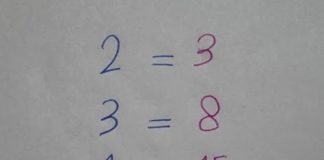 2 = 3
3 = 8